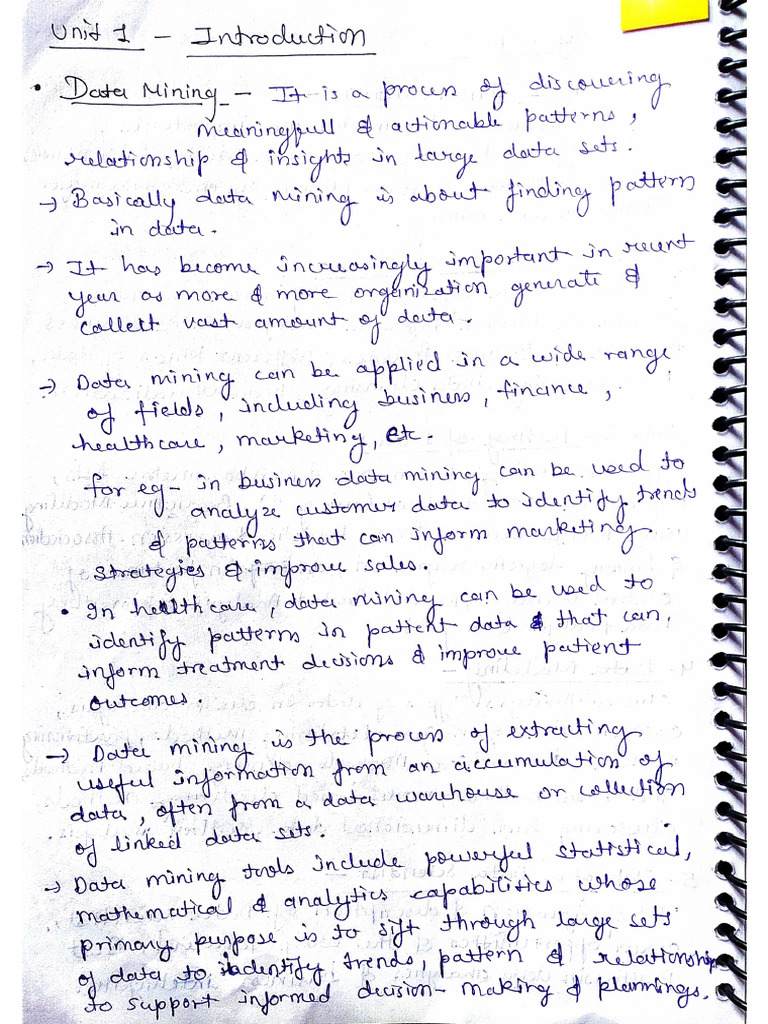 Unit 1 - Introduction
• Data Mining - It is a process of discovering
meaningfull & actionable patterns,
relationship & insights in large data sets.
→ Basically data mining is about finding pattern
in data.
→ It has become increasingly important in recent
year as more & more organization generate &
collect vast amount of data.
→ Data mining can be applied in a wide range
of fields, including business, finance,
healthcare, marketing, etc.
for eg - in business data mining can be used to
analyze customer data to identify trends
& patterns that can inform marketing
strategies & improve sales.
• In healthcare, data mining can be used to
identify patterns in patient data & that can
inform treatment decisions & improve patient
outcomes.
→ Data mining is the process of extracting
useful information from an accumulation of
data, often from a data warehouse or collection
of linked data sets.
→ Data mining tools include powerful statistical,
mathematical & analytics capabilities whose
primary purpose is to sift through large sets
of data to identify trends, pattern & relationship
to support informed decision-making & plannings.